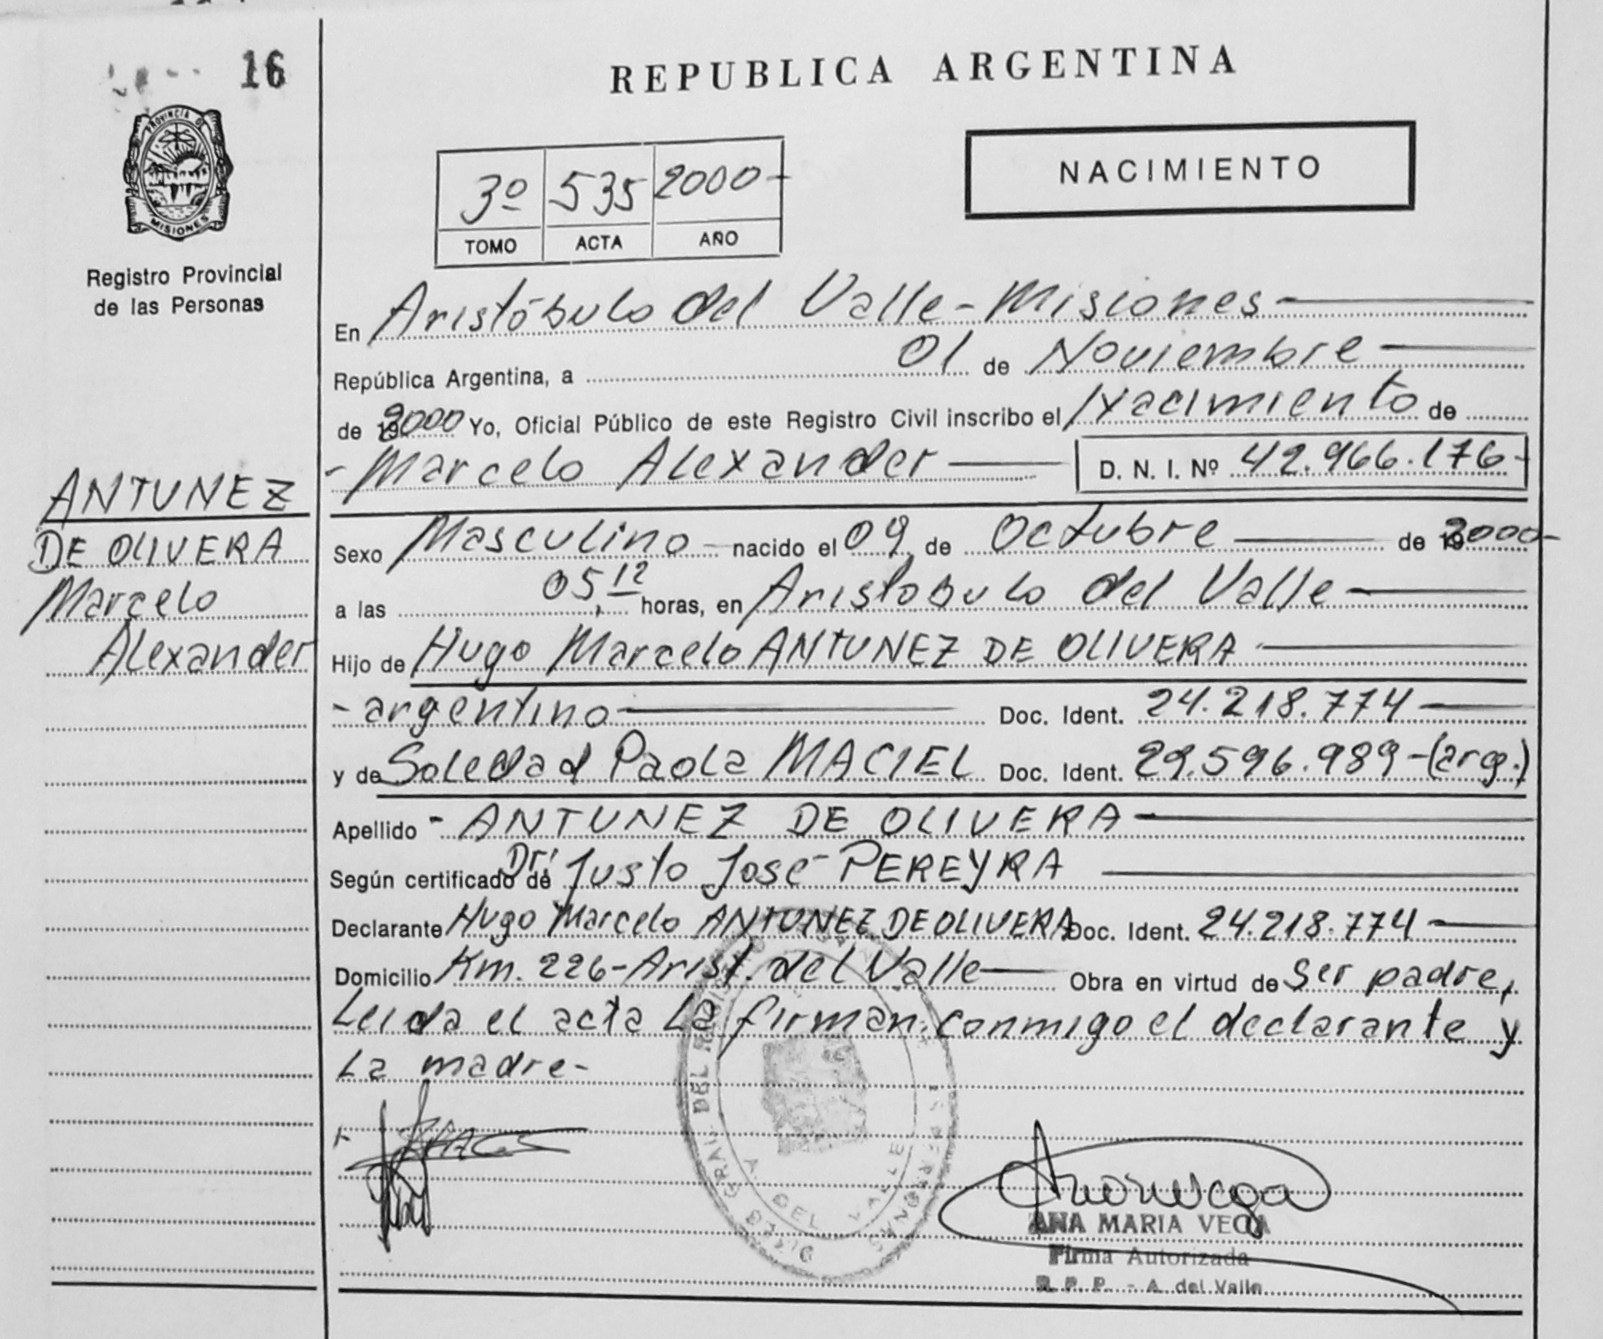 16
REPUBLICA ARGENTINA
PROVINCIA D
MISIONES
Registro Provincial
de las Personas
3º 535 2000-
TOMO ACTA AÑO
NACIMIENTO
En Aristóbulo del Valle - Misiones
República Argentina, a 01 de Noviembre
de 2000 Yo, Oficial Público de este Registro Civil inscribo el Nacimiento de
- Marcelo Alexander D. N. I. Nº 42.966.176-
ANTUNEZ
DE OLIVERA
Marcelo
Alexander
Sexo Masculino - nacido el 09 de Octubre de 2000-
a las 05,12 horas, en Aristobulo del Valle
Hijo de Hugo Marcelo ANTUNEZ DE OLIVERA
- argentino Doc. Ident. 24.218.774
y de Soledad Paola MACIEL Doc. Ident. 29.596.989-(arg.)
Apellido - ANTUNEZ DE OLIVERA
Según certificado de Dr. Justo José PEREYRA
Declarante Hugo Marcelo ANTUNEZ DE OLIVERA Doc. Ident. 24.218.774
Domicilio Km. 226-Arist. del Valle Obra en virtud de ser padre,
Leida el acta la firman conmigo el declarante y
la madre-
ANA MARIA VEGA
Firma Autorizada
R. P. P. - A. del Valle